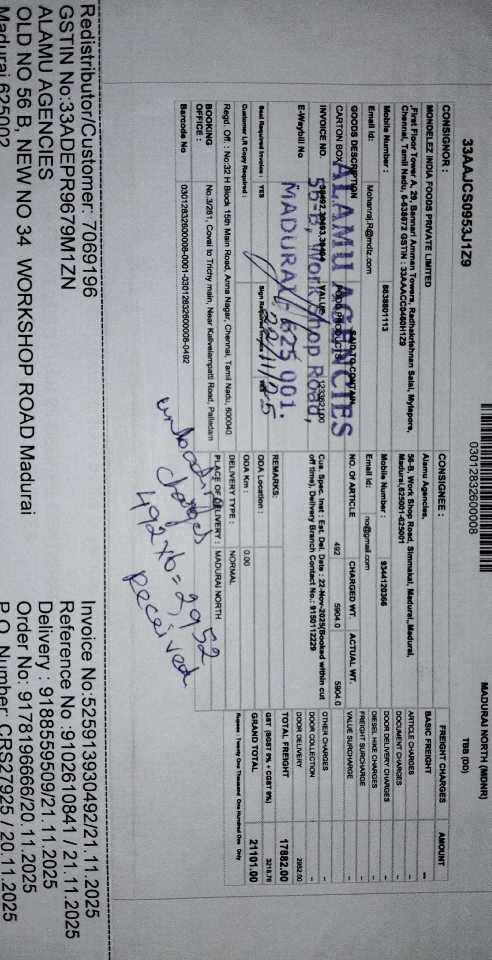 03012832600008
MADURAI NORTH (MDNR)
33AAJCS0953J1Z9
TBB (00)
CONSIGNOR :
MONDELEZ INDIA FOODS PRIVATE LIMITED
,First Floor Tower A, 29, Bannari Amman Towers, Radhakrishnan Salai, Mylapore,
Chennai, Tamil Nadu, 6-638672 GSTIN : 33AAACC0460H1Z9
Mobile Number : 8638801113
Email Id: Mohanraj.R@mdlz.com
GOODS DESCRIPTION
SAID TO CONTAIN
CARTON BOX
FOOD PRODUCTS
INVOICE NO.
VALUE
E-Waybill No
Seal Required Invoice : YES
Sign Required Invoice : YES
Customer LR Copy Required :
Regd. Off : No:32 H Block 15th Main Road, Anna Nagar, Chennai, Tamil Nadu, 600040
BOOKING OFFICE :
No:3/281, Covai to Trichy main, Near Kaliveiampatti Road, Palladam
Barcode No
03012832600008-0001-03012832600008-0492
ALAMU AGENCIES
56-B, Work Shop Road,
MADURAI - 625 001.
22/11/25
CONSIGNEE :
Alamu Agencies,
56-B, Work Shop Road, Simmakal, Madurai,,Madurai,
Madurai,625001-625001
Mobile Number : 9344120366
Email Id: no@gmail.com
NO. OF ARTICLE
CHARGED WT.
ACTUAL WT.
492
5904.0
5904.0
Cus. Spec. Inst : Est. Del. Date : 22-Nov-2025(Booked within cut
off time), Delivery Branch Contact No.: 9150112229
REMARKS:
ODA Location :
ODA Km : 0.00
DELIVERY TYPE : NORMAL
PLACE OF DELIVERY : MADURAI NORTH
unloading
charges
492x6=2,952
received
FREIGHT CHARGES
AMOUNT
BASIC FREIGHT --
ARTICLE CHARGES -
DOCUMENT CHARGES -
DOOR DELIVERY CHARGES -
DIESEL HIKE CHARGES -
FREIGHT SURCHARGE -
VALUE SURCHARGE -
OTHER CHARGES -
DOOR COLLECTION -
DOOR DELIVERY 2952.00
TOTAL FREIGHT 17882.00
GST (SGST 9% + CGST 9%) 3218.76
GRAND TOTAL 21101.00
Rupees : Twenty One Thousand One Hundred One Only
Redistributor/Customer: 7069196
GSTIN No:33ADEPR9679M1ZN
ALAMU AGENCIES
OLD NO 56 B, NEW NO 34 WORKSHOP ROAD Madurai
Madurai 625002
Invoice No:525913930492/21.11.2025
Reference No :9102610841 / 21.11.2025
Delivery : 9188559509/21.11.2025
Order No: 9178196666/20.11.2025
P.O. Number: CRS27925 / 20.11.2025